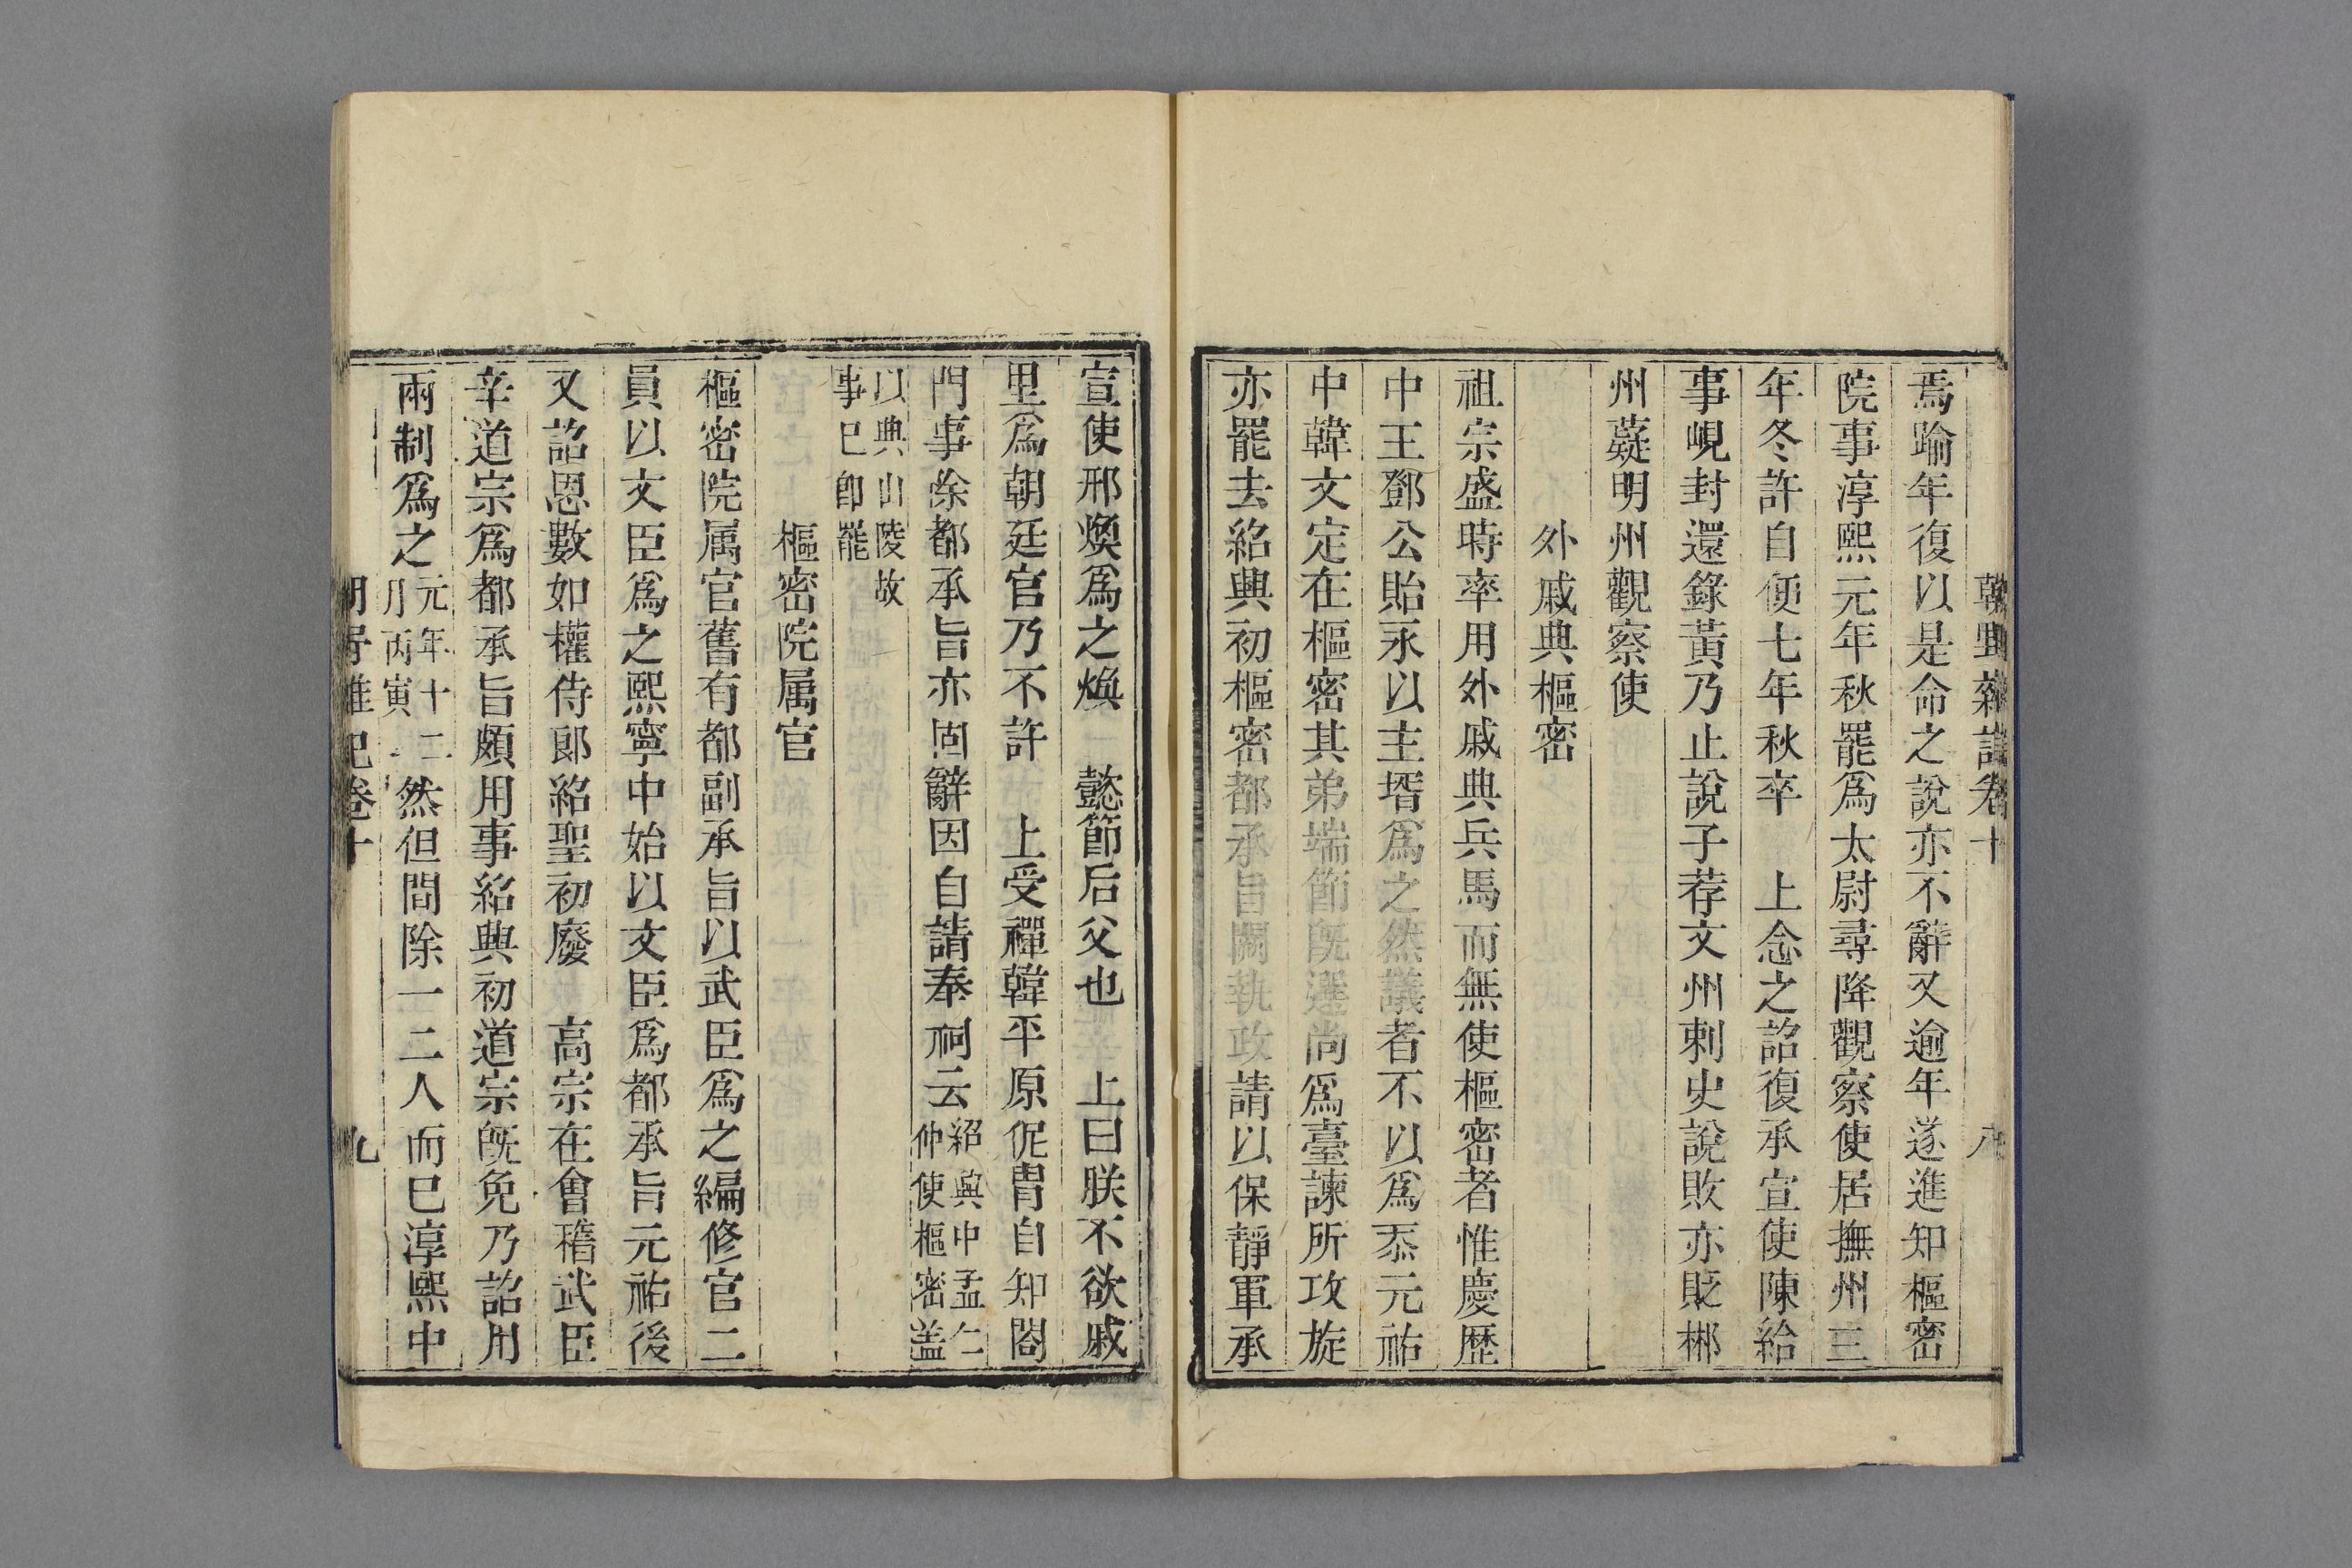 焉踰年復以是命之說亦不辭又逾年遂進知樞密
院事淳熙元年秋罷爲太尉尋降觀察使居撫州三
年冬許自便七年秋卒　上念之詔復承宣使陳給
事峴封還錄黃乃止說子荐文州刺史說敗亦貶郴
州薿明州觀察使
外戚典樞密
祖宗盛時率用外戚典兵馬而無使樞密者惟慶歷
中王鄧公貽永以主壻爲之然議者不以爲忝元祐
中韓文定在樞密其弟端節旣選尚爲臺諫所攻旋
亦罷去紹興初樞密都承旨闕執政請以保靜軍承
宣使邢煥爲之煥　懿節后父也　上曰朕不欲戚
里爲朝廷官乃不許　上受禪韓平原侂冑自知閤
門事除都承旨亦固辭因自請奉祠云紹興中孟仁
仲使樞密盖
以典山陵故
事已卽罷
樞密院属官
樞密院属官舊有都副承旨以武臣爲之編修官二
員以文臣爲之熙寧中始以文臣爲都承旨元祐後
又詔恩數如權侍郞紹聖初廢　高宗在會稽武臣
辛道宗爲都承旨頗用事紹興初道宗旣免乃詔用
兩制爲之元年十二
月丙寅然但間除一二人而已淳熙中
卷十
九